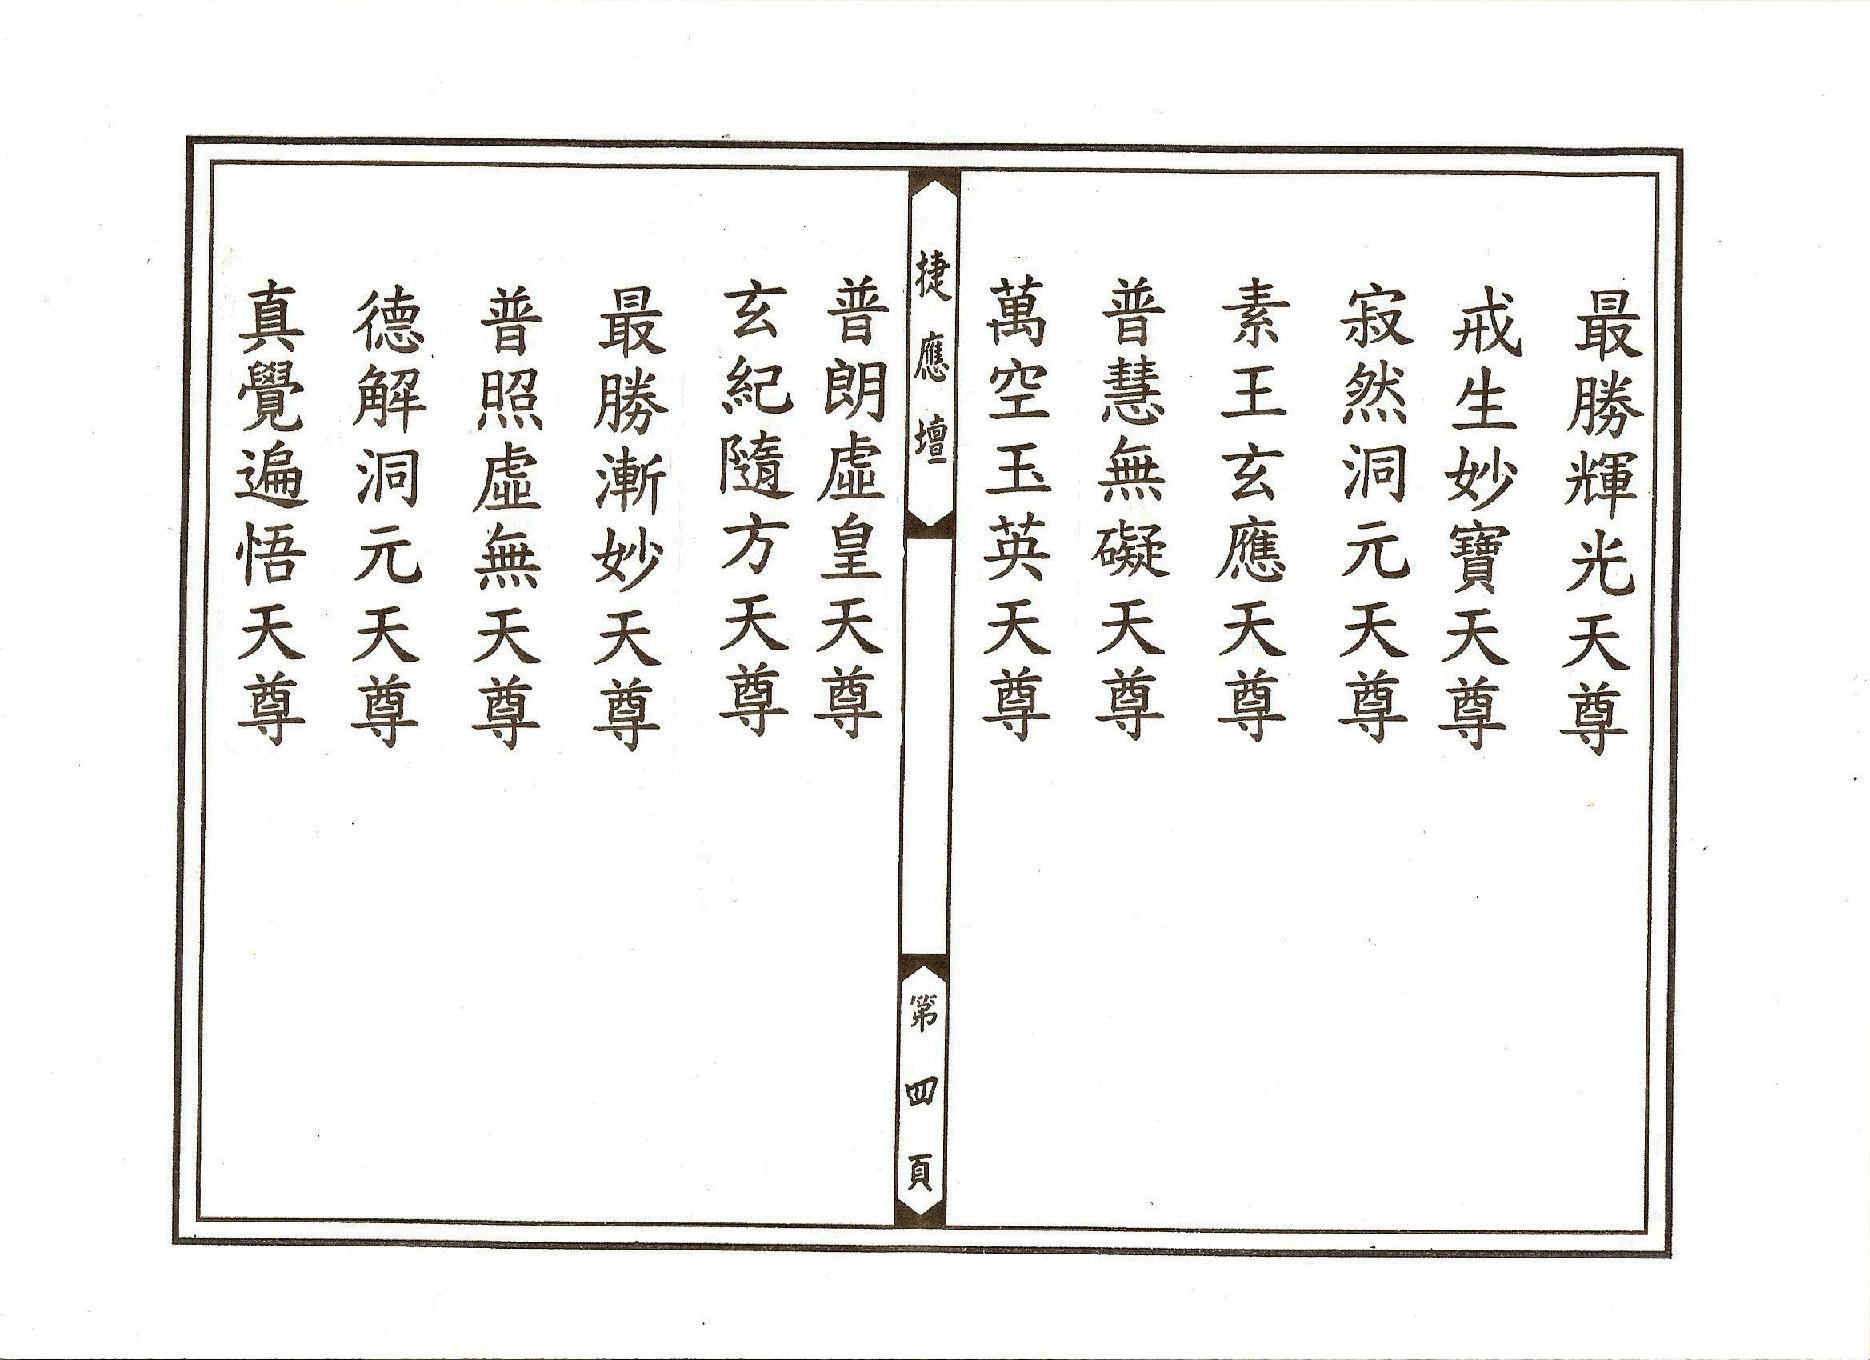 最勝輝光天尊
戒生妙寶天尊
寂然洞元天尊
素王玄應天尊
普慧無礙天尊
萬空玉英天尊
捷應壇
第四頁
普朗虛皇天尊
玄紀隨方天尊
最勝漸妙天尊
普照虛無天尊
德解洞元天尊
真覺遍悟天尊